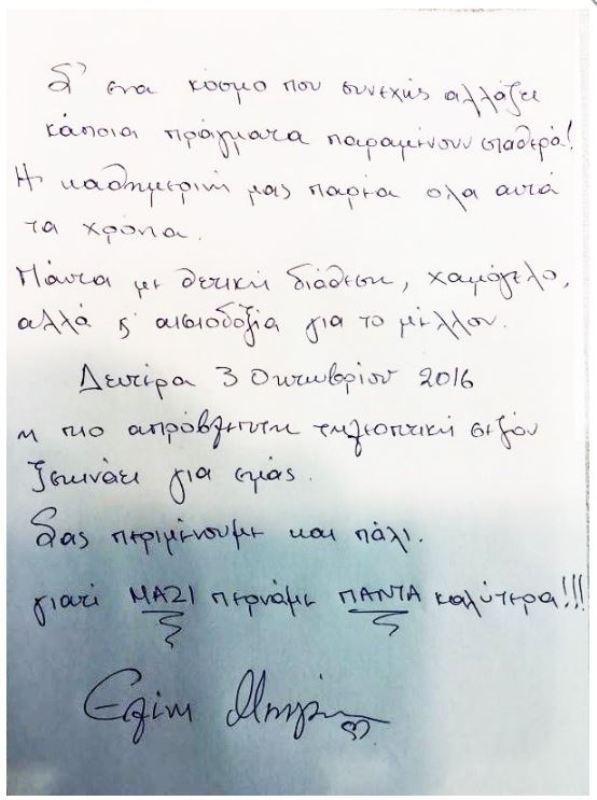 Σ' ένα κόσμο που συνεχής αλλάζει
κάποια πράγματα παραμένουν σταθερά!
Η καθημερινή μας παρέα όλα αυτά
τα χρόνια.
Πάντα με θετική διάθεση, χαμόγελο,
αλλά κ' αισιοδοξία για το μέλλον.
Δευτέρα 3 Οκτωβρίου 2016
η πιο απρόβλεπτη τηλεοπτική σεζόν
ξεκινάει για εμάς.
Σας περιμένουμε και πάλι.
γιατί ΜΑΖΙ περνάμε ΠΑΝΤΑ καλύτερα!!!
Ελένη